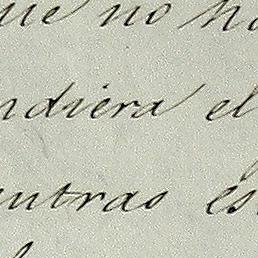 ue no h
ndiera el
ntras es